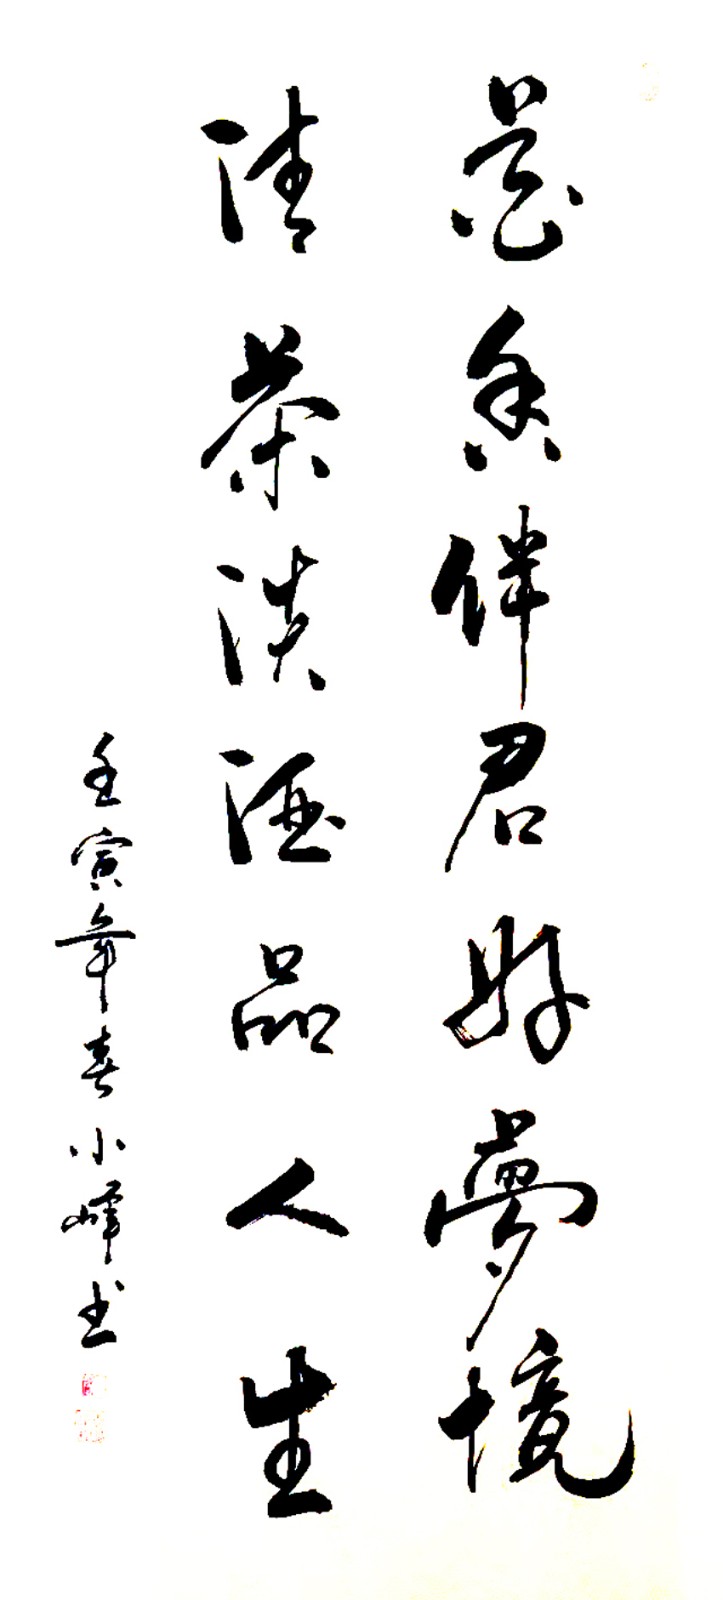 香伴君好夢境
清茶淡酒品人生
壬寅年春小峰书